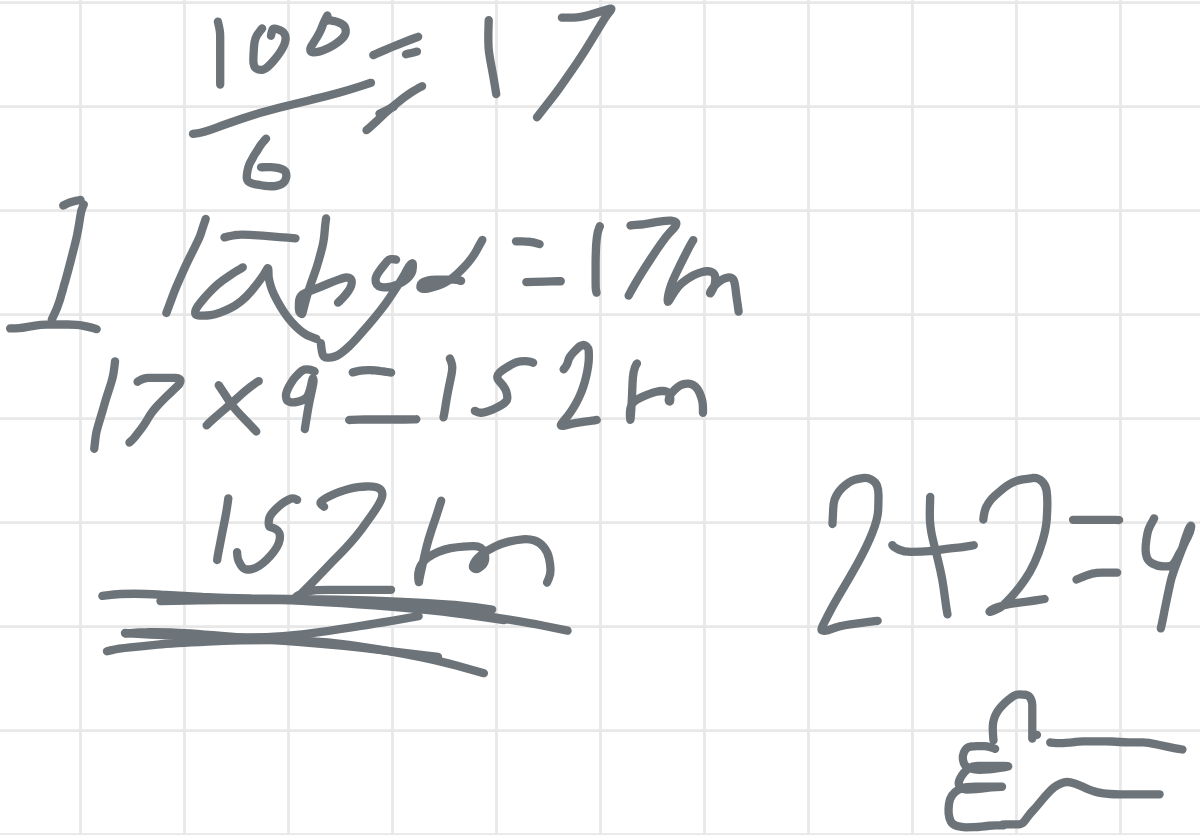 100/6 = 17
1 = 17m
17 × 9 = 152m
152m
2+2=4